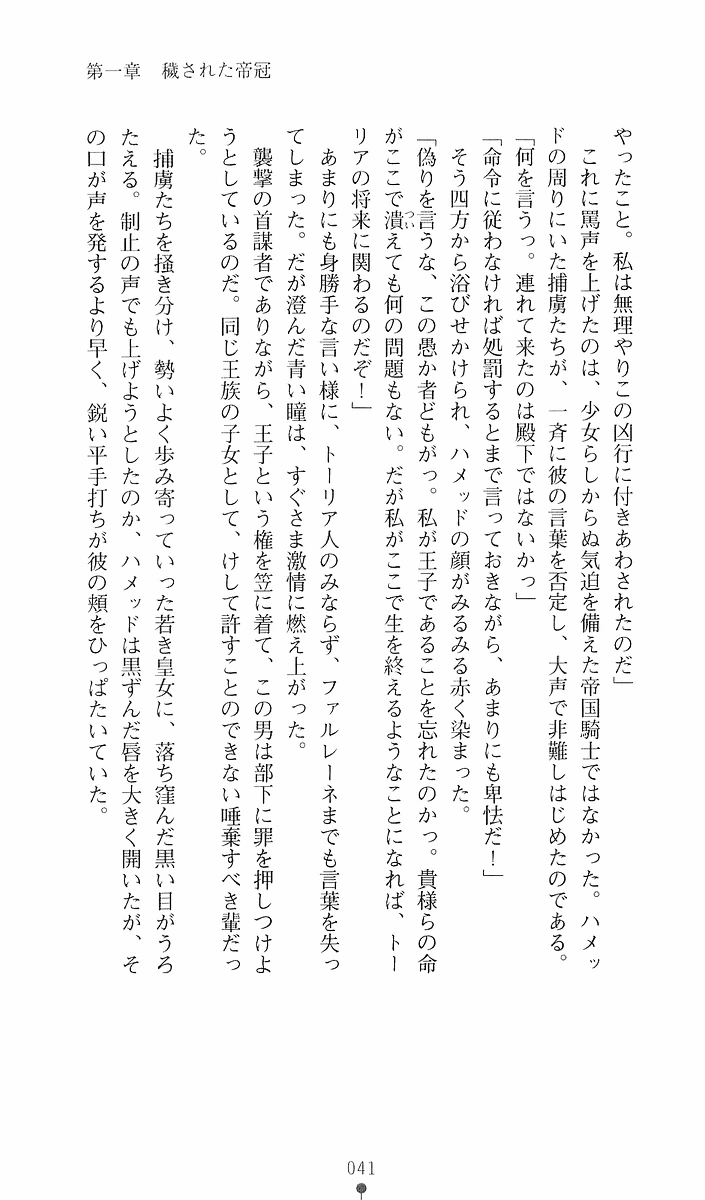 第一章　穢された帝冠
やったこと。私は無理やりこの凶行に付きあわされたのだ」
　これに罵声を上げたのは、少女らしからぬ気迫を備えた帝国騎士ではなかった。ハメッ
ドの周りにいた捕虜たちが、一斉に彼の言葉を否定し、大声で非難しはじめたのである。
「何を言うっ。連れて来たのは殿下ではないかっ」
「命令に従わなければ処罰するとまで言っておきながら、あまりにも卑怯だ！」
　そう四方から浴びせかけられ、ハメッドの顔がみるみる赤く染まった。
「偽りを言うな、この愚か者どもがっ。私が王子であることを忘れたのかっ。貴様らの命
がここで潰えても何の問題もない。だが私がここで生を終えるようなことになれば、トー
つい
リアの将来に関わるのだぞ！」
　あまりにも身勝手な言い様に、トーリア人のみならず、ファルレーネまでも言葉を失っ
てしまった。だが澄んだ青い瞳は、すぐさま激情に燃え上がった。
　襲撃の首謀者でありながら、王子という権を笠に着て、この男は部下に罪を押しつけよ
うとしているのだ。同じ王族の子女として、けして許すことのできない唾棄すべき輩だっ
た。
　捕虜たちを掻き分け、勢いよく歩み寄っていった若き皇女に、落ち窪んだ黒い目がうろ
たえる。制止の声でも上げようとしたのか、ハメッドは黒ずんだ唇を大きく開いたが、そ
の口が声を発するより早く、鋭い平手打ちが彼の頬をひっぱたいていた。
041